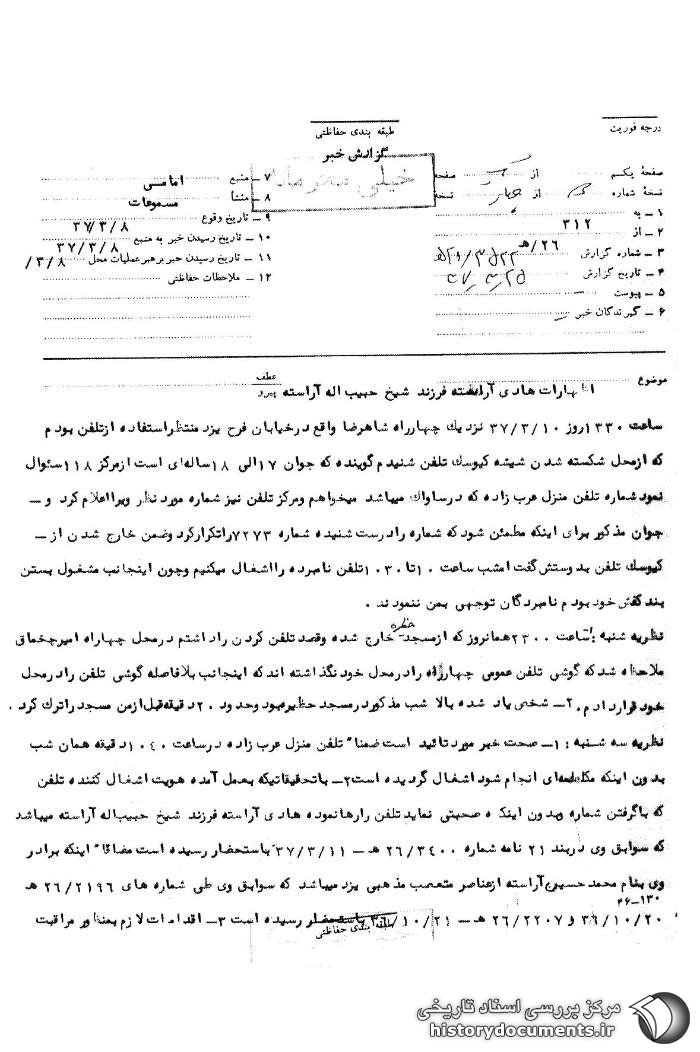 درجه فوریت
طبقه بندی حفاظتی
گزارش خبر
خیلی محرمانه
صفحهٔ یکم از صفحه
نسخهٔ شماره از چهار نسخهٔ
۱ ـ به
۲ ـ از ۳۱۲
۳ ـ شماره گزارش ۲۶/هـ
۴ ـ تاریخ گزارش
۵ ـ پیوست
۶ ـ گیرندگان خبر
۷ ـ منبع امامی
۸ ـ منشأ مسموعات
۹ ـ تاریخ وقوع ۳۷/۳/۸
۱۰ ـ تاریخ رسیدن خبر به منبع ۳۷/۳/۸
۱۱ ـ تاریخ رسیدن خبر برهبر عملیات محل ۳/۸/
۱۲ ـ ملاحظات حفاظتی
موضوع اظهارات هادی آراسته فرزند شیخ حبیب اله آراسته عطف پیرو
ساعت ۱۳۳۰ روز ۳۷/۳/۱۰ نزدیك چهارراه شاهرضا واقع در خیابان فرح یزد منتظر استفاده از تلفن بودم
که از محل شکسته شدن شیشه کیوسك تلفن شنیدم گوینده که جوان ۱۷ الی ۱۸ ساله‌ای است از مرکز ۱۱۸ سئوال
نمود شماره تلفن منزل عرب زاده که در ساواك میباشد میخواهم ومرکز تلفن نیز شماره مورد نظر ویرا اعلام کرد و ـ
جوان مذکور برای اینکه مطمئن شود که شماره را درست شنیده شماره ۷۲۷۳ را تکرار کرد وضمن خارج شدن از ـ
کیوسك تلفن بدوستش گفت امشب ساعت ۱۰ تا ۱۰۳۰ تلفن نامبرده را اشغال میکنیم وچون اینجانب مشغول بستن
بند کفش خود بودم نامبردگان توجهی بمن ننمودند .
نظریه شنبه : ۱ـ ساعت ۲۳۰۰ همانروز که از مسجد حظیره خارج شده وقصد تلفن کردن را داشتم در محل چهاراه امیرچخماق
ملاحظه شد که گوشی تلفن عمومی چهارراه را در محل خود نگذاشته اند که اینجانب بلافاصله گوشی تلفن را در محل
خود قرار دادم. ۲ـ شخص یاد شده بالا شب مذکور در مسجد حظیره بود وحدود ۲۰ دقیقه قبل از من مسجد را ترك کرد .
نظریه سه شنبه : ۱ـ صحت خبر مورد تائید است ضمنا" تلفن منزل عرب زاده در ساعت ۱۰۴۰ دقیقه همان شب
بدون اینکه مکالمه‌ای انجام شود اشغال گردیده است ۲ـ باتحقیقاتیکه بعمل آمده هویت اشغال کننده تلفن
که باگرفتن شماره وبدون اینکه صحبتی نماید تلفن را رها نموده هادی آراسته فرزند شیخ حبیب‌اله آراسته میباشد
که سوابق وی در بند ۲۱ نامه شماره ۲۶/۳۴۰۰ هـ ـ ۳۷/۳/۱۱ باستحضار رسیده است مضافا" اینکه برادر
وی بنام محمد حسین آراسته از عناصر متعصب مذهبی یزد میباشد که سوابق وی طی شماره های ۲۶/۲۱۹۶ هـ
۱۳۰ـ۴۶
۳۶/۱۰/۲۰ و ۲۶/۲۲۰۷ هـ ـ ۳۶/۱۰/۲۱ باستحضار رسیده است ۳ـ اقدامات لازم بمنظور مراقبت
طبقه بندی حفاظتی
مرکز بررسی اسناد تاریخی
historydocuments.ir